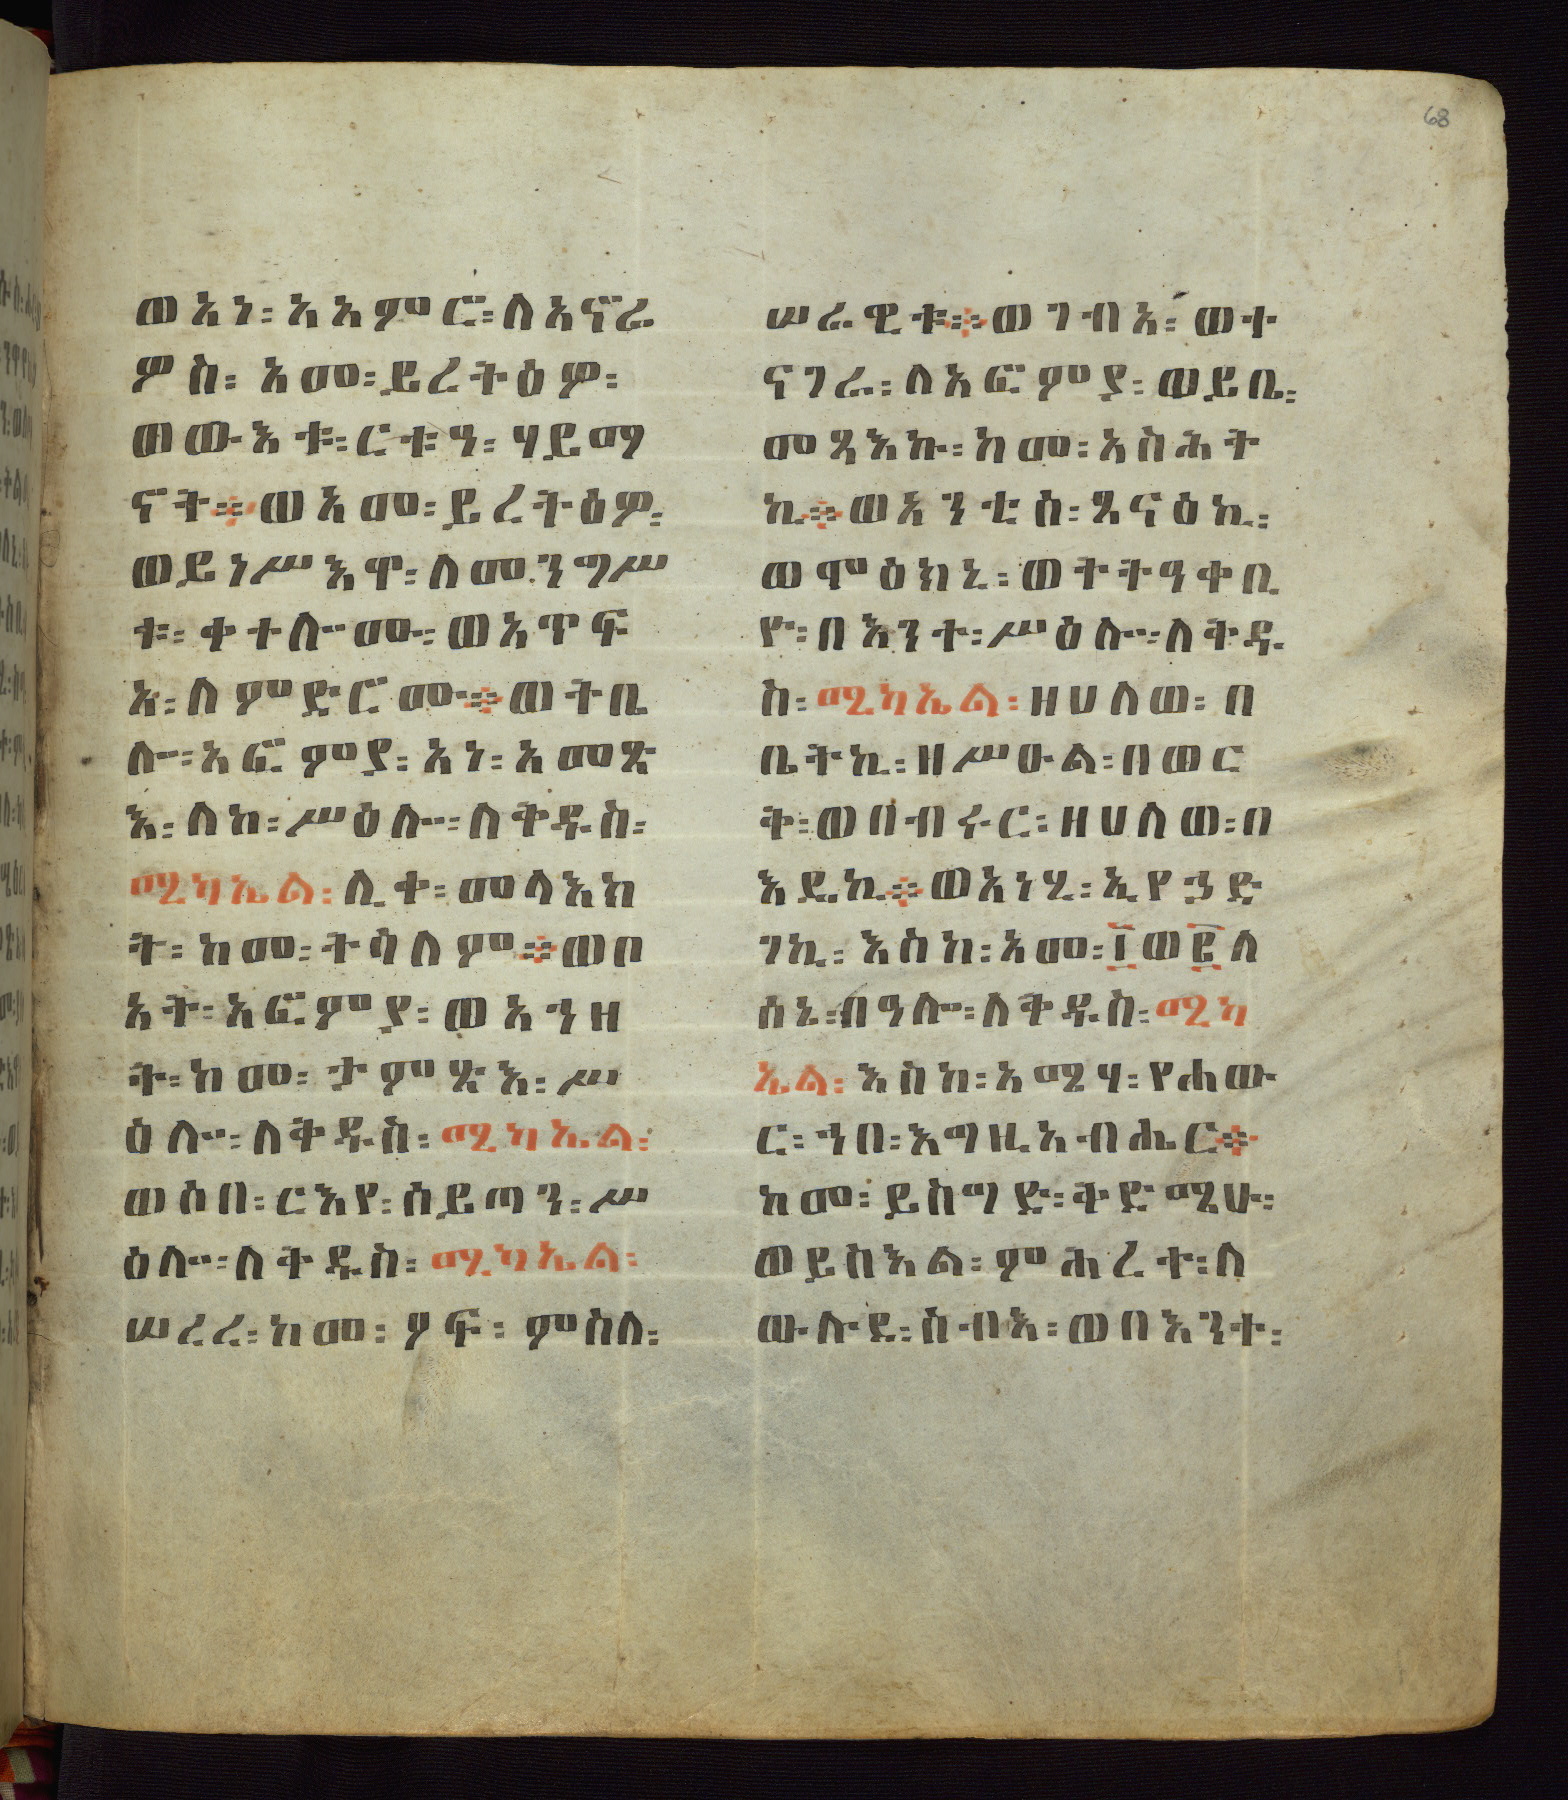 68
ወአነ፡ አአምር፡ ለአኖሬ
ዎስ፡ አመ፡ ይረትዕዎ፡
ወውእቱ፡ ርቱዓ፡ ሃይማ
ኖት፨ ወአመ፡ ይረትዕዎ፡
ወይነሥእዋ፡ ለመንግሥ
ቱ፡ ቀተሎሙ፡ ወአጥፍ
አ፡ ለምድሮሙ፨ ወትቢ
ሎ፡ አፎምያ፡ አነ፡ አመጽ
እ፡ ለከ፡ ሥዕሎ፡ ለቅዱስ፡
ሚካኤል፡ ሊቀ፡ መላእክ
ት፡ ከመ፡ ትሳለም፨ ወቦ
አት፡ አፎምያ፡ ወአንዘ
ት፡ ከመ፡ ታምጽእ፡ ሥ
ዕሎ፡ ለቅዱስ፡ ሚካኤል፡
ወሶበ፡ ርእየ፡ ሰይጣን፡ ሥ
ዕሎ፡ ለቅዱስ፡ ሚካኤል፡
ሠረረ፡ ከመ፡ ዖፍ፡ ምስለ፡
ሠራዊቱ፨ ወገብአ፡ ወተ
ናገራ፡ ለአፎምያ፡ ወይቤ፡
መጻእኩ፡ ከመ፡ አስሕት
ኪ፨ ወአንቲሰ፡ ጸናዕኪ፡
ወሞዕክኒ፡ ወተትዓቀቢ
ዮ፡ በእንተ፡ ሥዕሎ፡ ለቅዱ
ስ፡ ሚካኤል፡ ዘሀለወ፡ በ
ቤትኪ፡ ዘሥዑል፡ በወር
ቅ፡ ወበብሩር፡ ዘሀለወ፡ በ
እዴኪ፨ ወአነሂ፡ ኢየኃድ
ገኪ፡ እስከ፡ አመ፡ ፲ወ፪ለ
ሰኔ፡ በዓሎ፡ ለቅዱስ፡ ሚካ
ኤል፡ እስከ፡ አሜሃ፡ የሐው
ር፡ ኀበ፡ እግዚአብሔር፨
ከመ፡ ይስግድ፡ ቅድሜሁ፡
ወይስእል፡ ምሕረተ፡ ለ
ውሉደ፡ ሰብእ፡ ወበእንተ፡